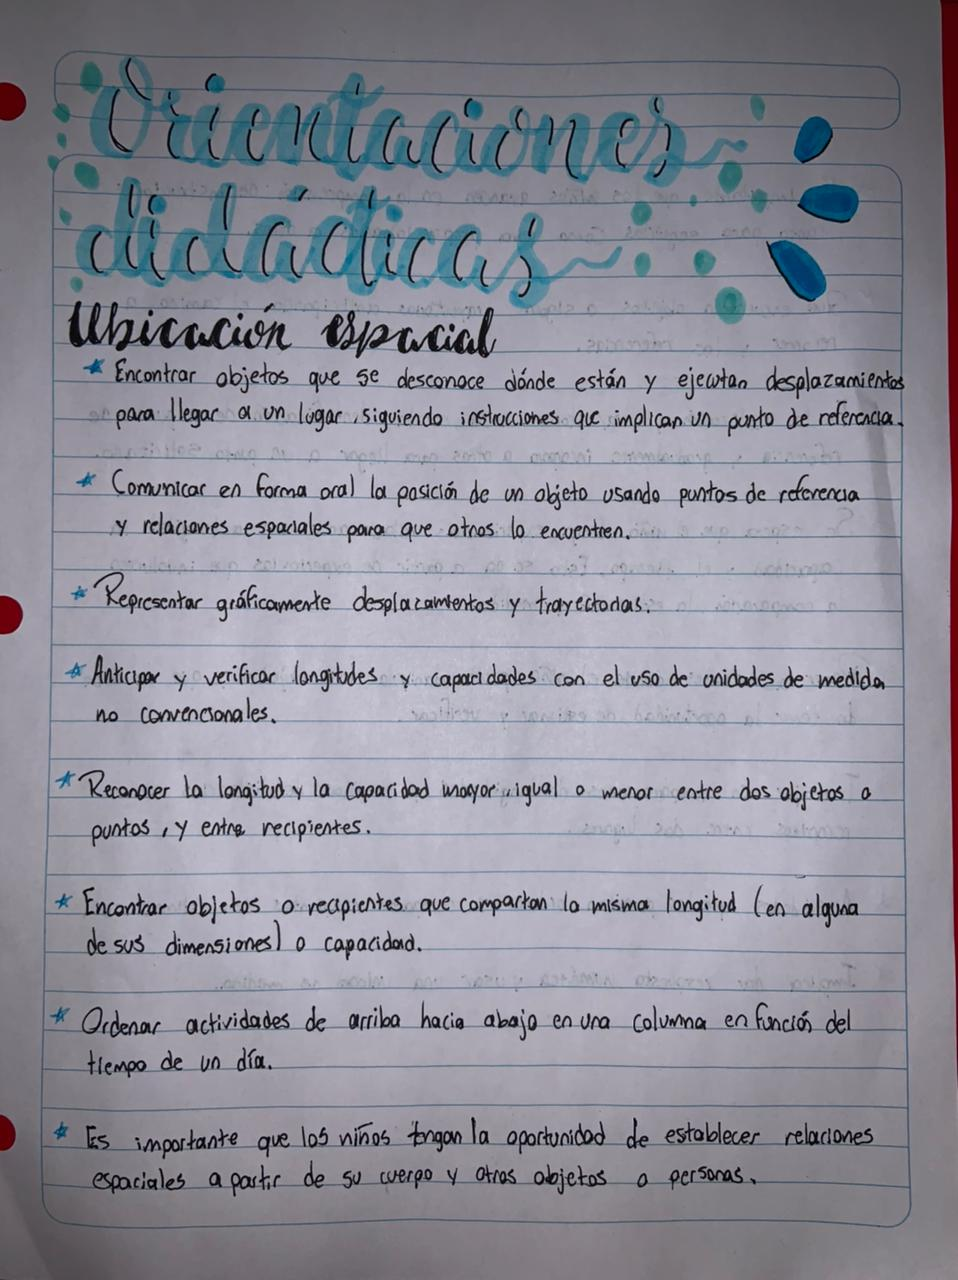 Orientaciones
didácticas
Ubicación espacial
* Encontrar objetos que se desconoce dónde están y ejecutan desplazamientos
para llegar a un lugar, siguiendo instrucciones que implican un punto de referencia.
* Comunicar en forma oral la posición de un objeto usando puntos de referencia
y relaciones espaciales para que otros lo encuentren.
* Representar gráficamente desplazamientos y trayectorias.
* Anticipar y verificar longitudes y capacidades con el uso de unidades de medida
no convencionales.
* Reconocer la longitud y la capacidad mayor, igual o menor entre dos objetos o
puntos, y entre recipientes.
* Encontrar objetos o recipientes que compartan la misma longitud (en alguna
de sus dimensiones) o capacidad.
* Ordenar actividades de arriba hacia abajo en una columna en función del
tiempo de un día.
* Es importante que los niños tengan la oportunidad de establecer relaciones
espaciales a partir de su cuerpo y otros objetos o personas.